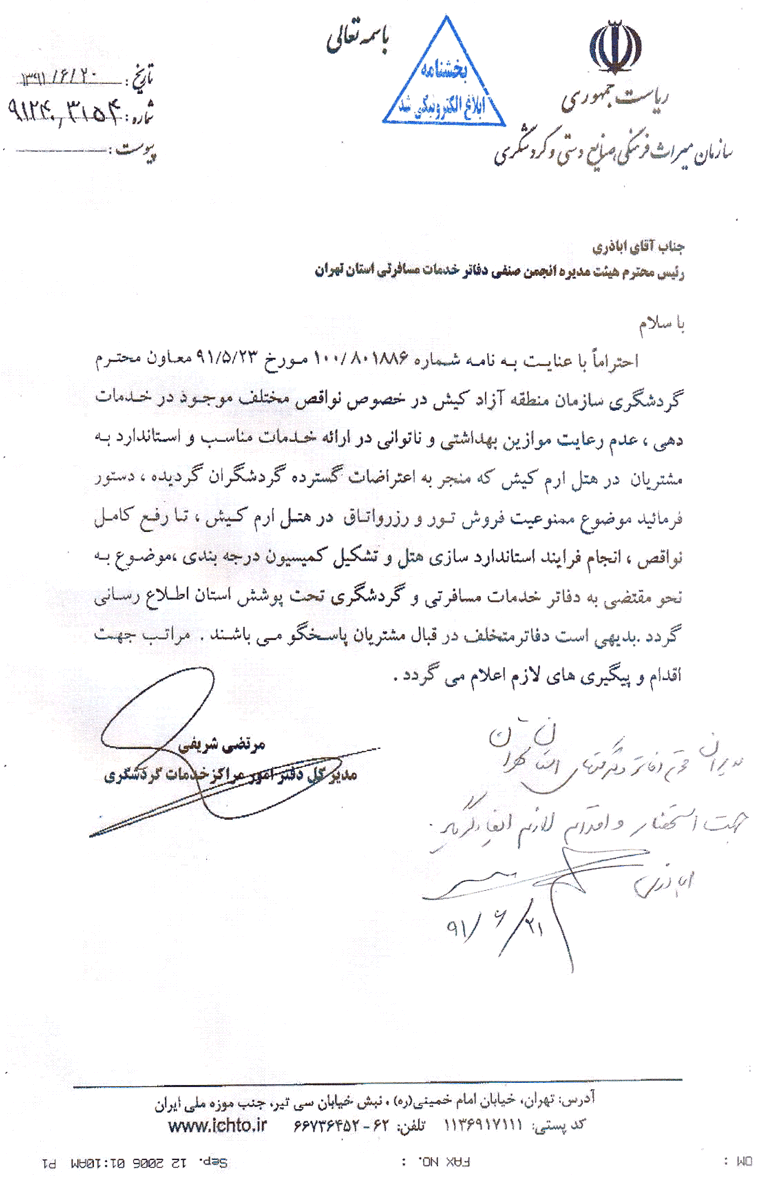 باسمه تعالی
ریاست جمهوری
سازمان میراث فرهنگی، صنایع دستی و گردشگری
بخشنامه
ابلاغ الکترونیکی شد
تاریخ: ۱۳۹۱/۶/۲۰
شماره: ۹۱۲۴۰٫۳۱۵۴
پیوست:
جناب آقای اباذری
رئیس محترم هیئت مدیره انجمن صنفی دفاتر خدمات مسافرتی استان تهران
با سلام
احتراماً با عنایت به نامه شماره ۱۰۰/۸۰۱۸۸۶ مورخ ۹۱/۵/۲۳ معاون محترم
گردشگری سازمان منطقه آزاد کیش در خصوص نواقص مختلف موجود در خدمات
دهی ، عدم رعایت موازین بهداشتی و ناتوانی در ارائه خدمات مناسب و استاندارد به
مشتریان در هتل ارم کیش که منجر به اعتراضات گسترده گردشگران گردیده ، دستور
فرمائید موضوع ممنوعیت فروش تور و رزرواتاق در هتل ارم کیش ، تا رفع کامل
نواقص ، انجام فرایند استاندارد سازی هتل و تشکیل کمیسیون درجه بندی ،موضوع به
نحو مقتضی به دفاتر خدمات مسافرتی و گردشگری تحت پوشش استان اطلاع رسانی
گردد .بدیهی است دفاترمتخلف در قبال مشتریان پاسخگو می باشند . مراتب جهت
اقدام و پیگیری های لازم اعلام می گردد .
مرتضی شریفی
مدیر کل دفتر امور مراکز خدمات گردشگری
مدیران محترم دفاتر استان تهران
جهت استحضار و اقدام لازم ایفاد میگردد.
اباذری
۹۱/۶/۲۱
آدرس: تهران، خیابان امام خمینی(ره) ، نبش خیابان سی تیر، جنب موزه ملی ایران
کد پستی: ۱۱۳۶۹۱۷۱۱۱ تلفن: ۶۲-۶۶۷۳۶۴۵۲ www.ichto.ir
FAX NO. : Sep. 12 2006 01:10AM P1